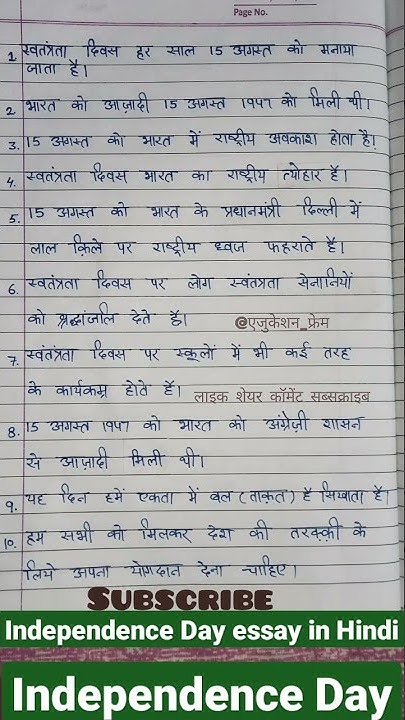 Page No.
1 स्वतंत्रता दिवस हर साल 15 अगस्त को मनाया
जाता है।
2 भारत को आज़ादी 15 अगस्त १९५७ को मिली थी।
3. 15 अगस्त को भारत में राष्ट्रीय अवकाश होता है।
4. स्वतंत्रता दिवस भारत का राष्ट्रीय त्योहार है।
5. 15 अगस्त को भारत के प्रधानमंत्री दिल्ली में
लाल क़िले पर राष्ट्रीय ध्वज फहराते है।
6. स्वतंत्रता दिवस पर लोग स्वंतत्रता सेनानियों
को श्रद्धांजलि देते है।
@एजुकेशन_फ्रेम
7. स्वंतंत्रता दिवस पर स्कूलों में भी कई तरह
के कार्यकम्र होते है।
लाइक शेयर कॉमेंट सब्सक्राइब
8. 15 अगस्त १९५७ को भारत को अंग्रेज़ी शासन
से आज़ादी मिली थी।
9. यह दिन हमें एकता में बल (ताक़त) है सिखाता है।
10. हम सभी को मिलकर देश की तरक़्क़ी के
लिये अपना योगदान देना चाहिए।
SUBSCRIBE
Independence Day essay in Hindi
Independence Day